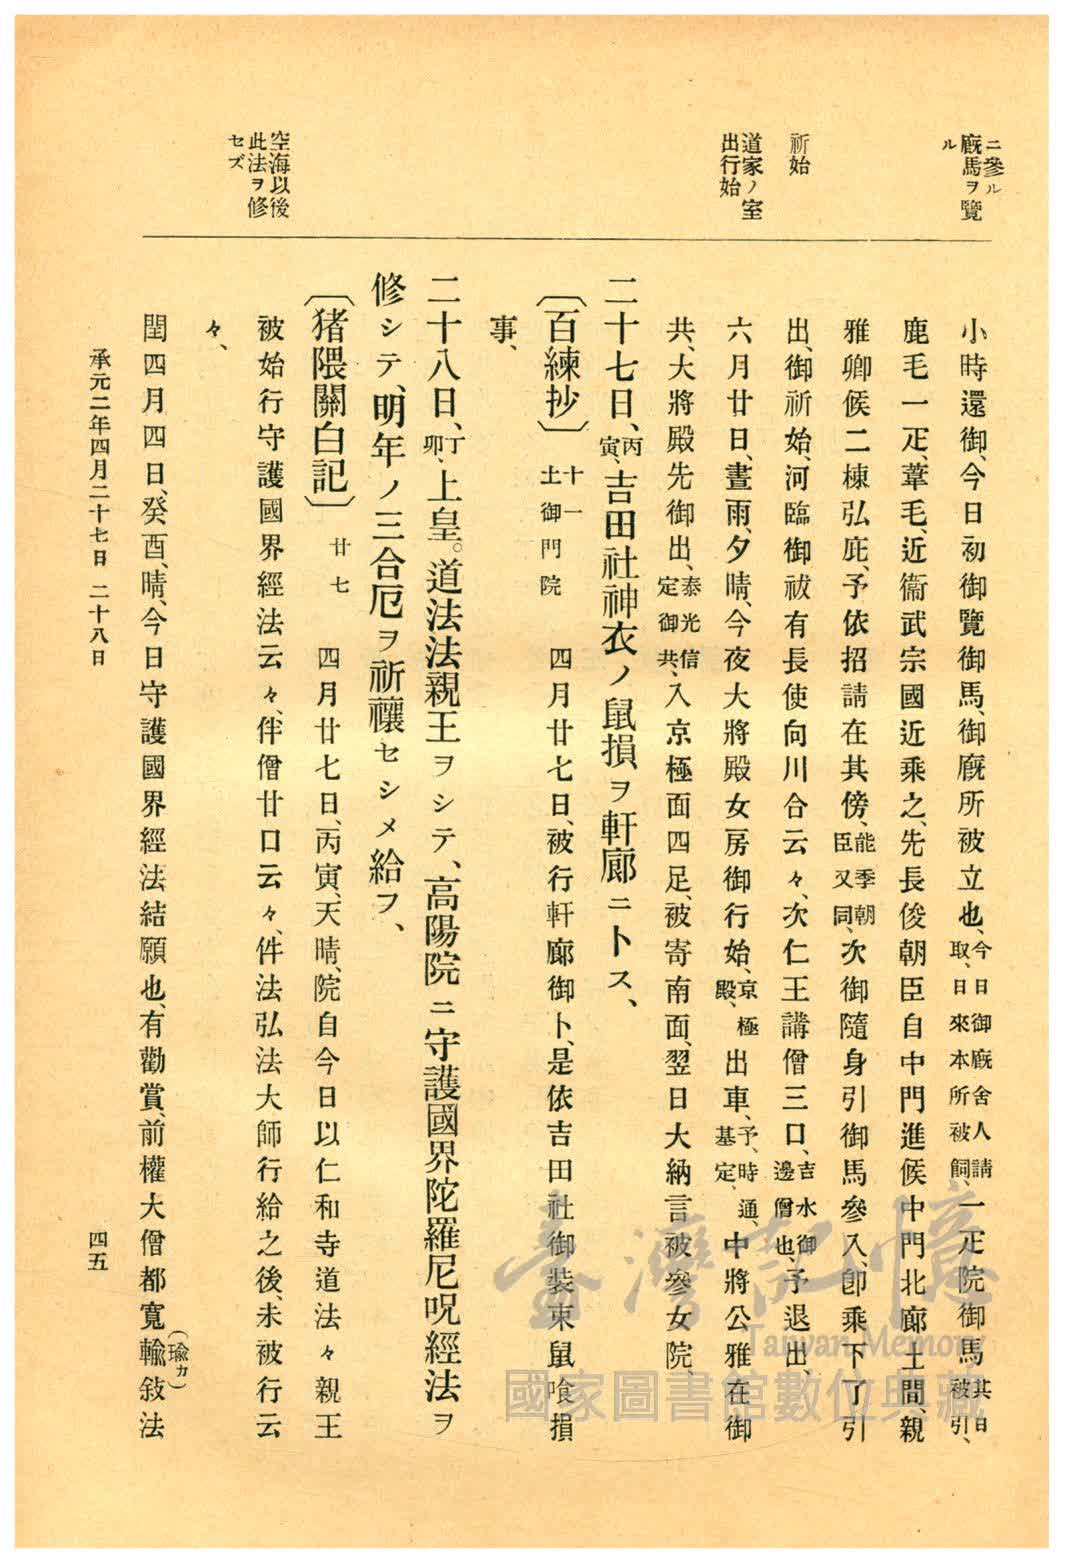 ニ參ル
廐馬ヲ覽
ル
祈始
道家ノ室
出行始
空海以後
此法ヲ修
セズ
小時還御、今日初御覽御馬、御廐所被立也、今日御廐舍人請取、日來本所被飼、一疋院御馬其日被引、
鹿毛一疋、葦毛、近衞武宗國近乘之、先長俊朝臣自中門進候中門北廊土間、親
雅卿候二棟弘庇、予依招請在其傍、能季朝臣又同、次御隨身引御馬參入、卽乘下了引
出、御祈始、河臨御祓有長使向川合云々、次仁王講僧三口、吉水御邊僧也、予退出、
六月廿日、晝雨、夕晴、今夜大將殿女房御行始、京極殿、出車、予、時通、基定、中將公雅在御
共、大將殿先御出、泰光信定御共、入京極面四足、被寄南面、翌日大納言被參女院、
二十七日、丙寅、吉田社神衣ノ鼠損ヲ軒廊ニトス、
〔百練抄〕十一土御門院 四月廿七日、被行軒廊御卜、是依吉田社御裝束鼠喰損
事、
二十八日、丁卯、上皇。道法法親王ヲシテ、高陽院ニ守護國界陀羅尼呪經法ヲ
修シテ、明年ノ三合厄ヲ祈禳セシメ給フ、
〔猪隈關白記〕廿七 四月廿七日、丙寅、天晴、院自今日以仁和寺道法々親王
被始行守護國界經法云々、伴僧廿口云々、件法弘法大師行給之後、未被行云
々、
閏四月四日、癸酉、晴、今日守護國界經法結願也、有勸賞、前權大僧都寬輸(瑜カ)敍法
承元二年四月二十七日 二十八日
四五
臺灣記憶
Taiwan Memory
國家圖書館數位典藏